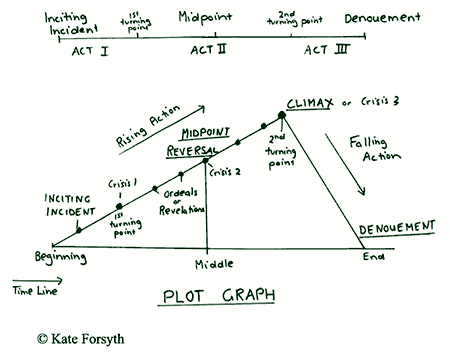 Inciting Incident
1st turning point
Midpoint
2nd turning point
Denouement
ACT I
ACT II
ACT III
Rising Action
CLIMAX or Crisis 3
MIDPOINT
REVERSAL
2nd turning point
Falling Action
Crisis 2
Crisis 1
INCITING
INCIDENT
1st turning point
Ordeals or Revelations
DENOUEMENT
Beginning
Middle
End
Time Line
PLOT GRAPH
© Kate Forsyth